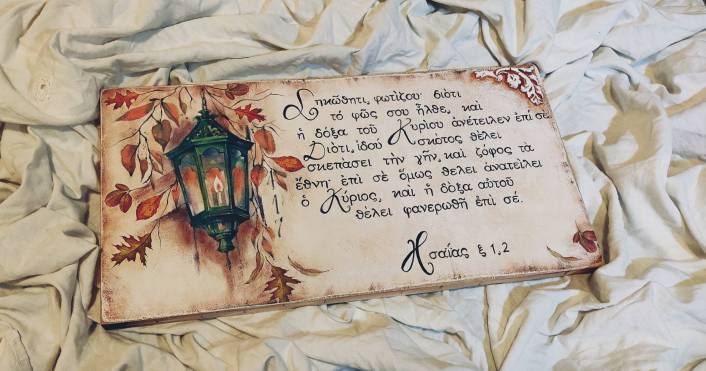 Σηκώθητι, φωτίζου· διότι
τό φῶς σου ἦλθε, καί
ἡ δόξα τοῦ Κυρίου ἀνέτειλεν ἐπί σέ
Διότι, ἰδού σκότος θέλει
σκεπάσει τὴν γῆν, καὶ ζόφος τὰ
ἔθνη· ἐπὶ σὲ ὅμως θέλει ἀνατείλει
ὁ Κύριος, καὶ ἡ δόξα αὐτοῦ
θέλει φανερωθῆ ἐπὶ σέ.
Ησαΐας ξ 1,2